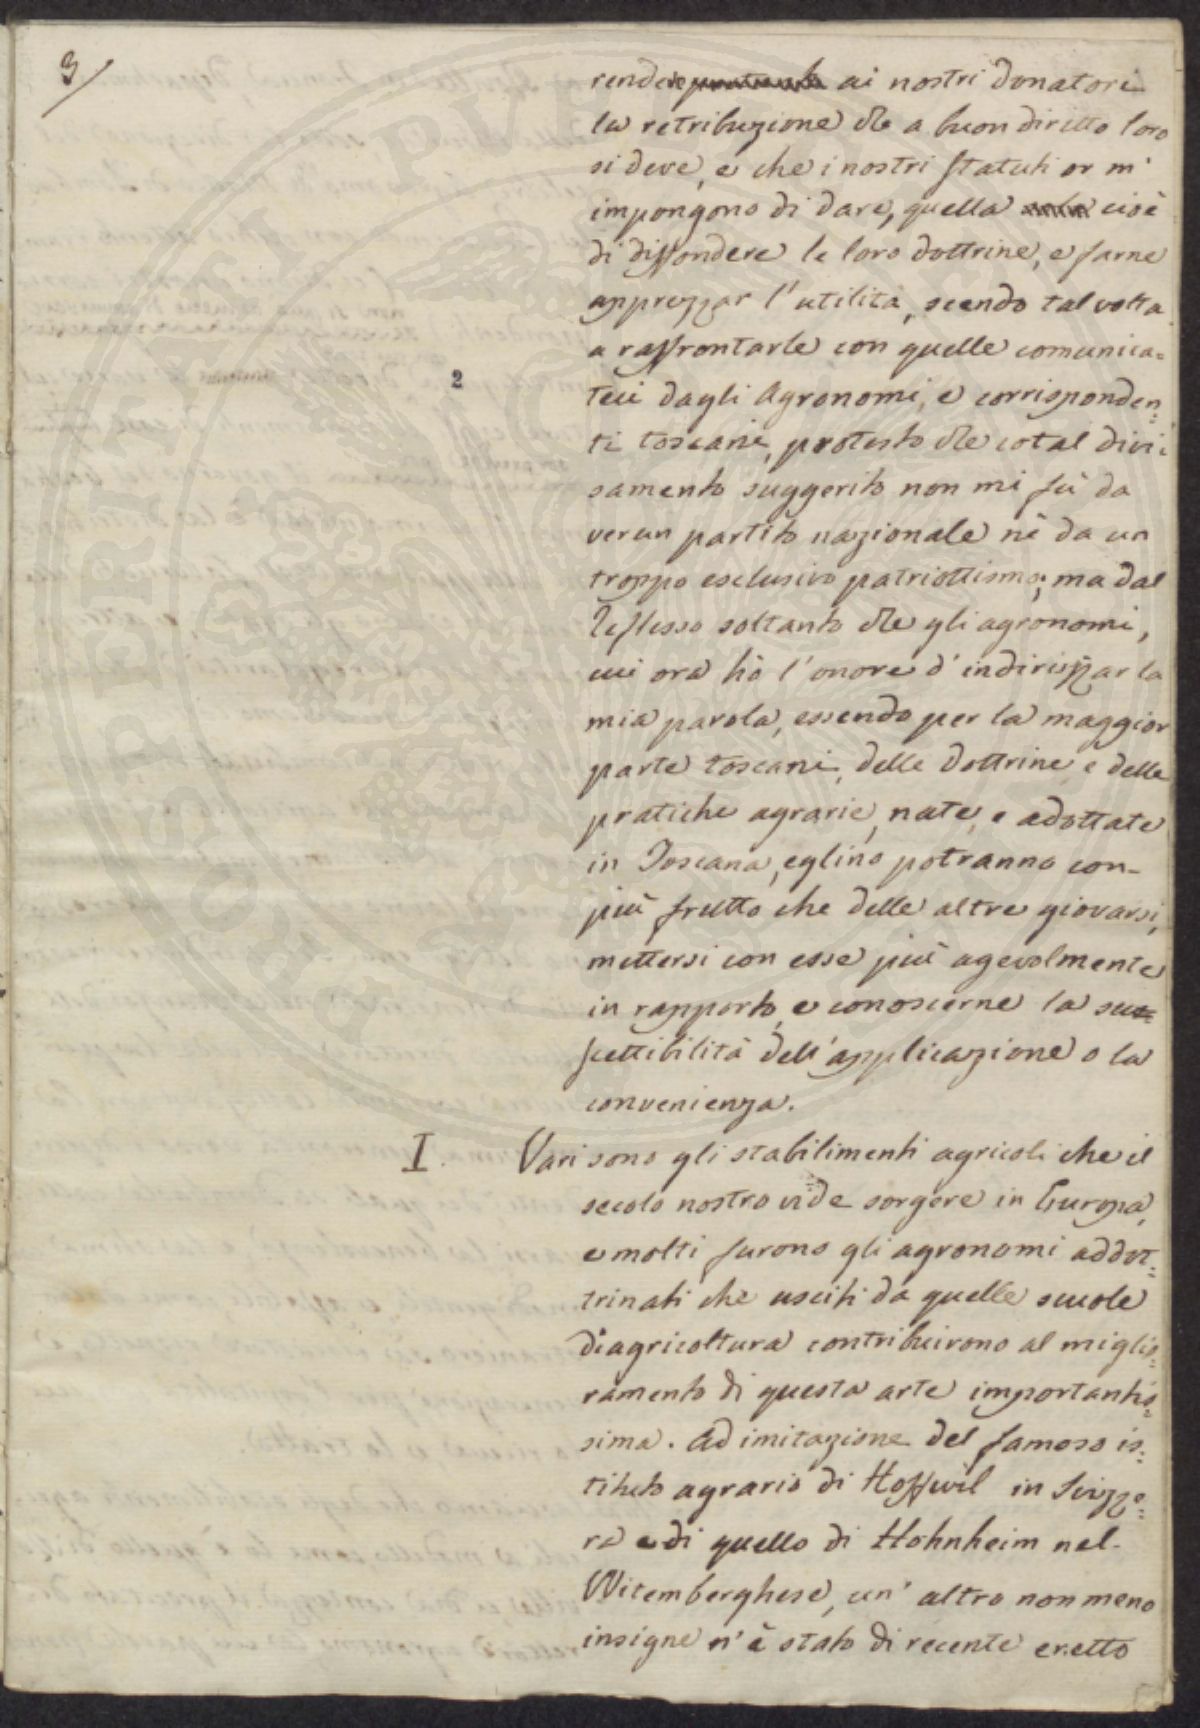 3/
rendere ai nostri donatori
la retribuzione che a buon diritto loro
si deve, e che i nostri Statuti or m'
impongono di dare, quella cioè
di diffondere le loro dottrine, e farne
apprezzar l'utilità, scendo talvolta
a raffrontarle con quelle comunica=
2
teci dagli Agronomi, e corrisponden=
ti toscani, protesto che cotal divi=
samento suggerito non mi fù da
verun partito nazionale nè da un
troppo esclusivo patriottismo; ma dal
reflesso soltanto che gli agronomi,
cui ora hò l'onore d'indirizzar la
mia parola, essendo per la maggior
parte toscani, delle dottrine e delle
pratiche agrarie, nate, e adottate
in Toscana, eglino potranno con-
più frutto che delle altre giovarsi,
mettersi con esse più agevolmente
in rapporto, e conoscerne la su=
scettibilità dell'applicazione o la
convenienza.
I. Vari sono gli stabilimenti agricoli che il
secolo nostro vide sorgere in Europa,
e molti furono gli agronomi addot=
trinati che usciti da quelle scuole
di agricoltura contribuirono al miglio=
ramento di questa arte importantis=
sima. Ad imitazione del famoso is=
tituto agrario di Hoffwil in Svizze=
ra e di quello di Hohnheim nel-
Witemberghese, un' altro non meno
insigne n'è stato di recente eretto